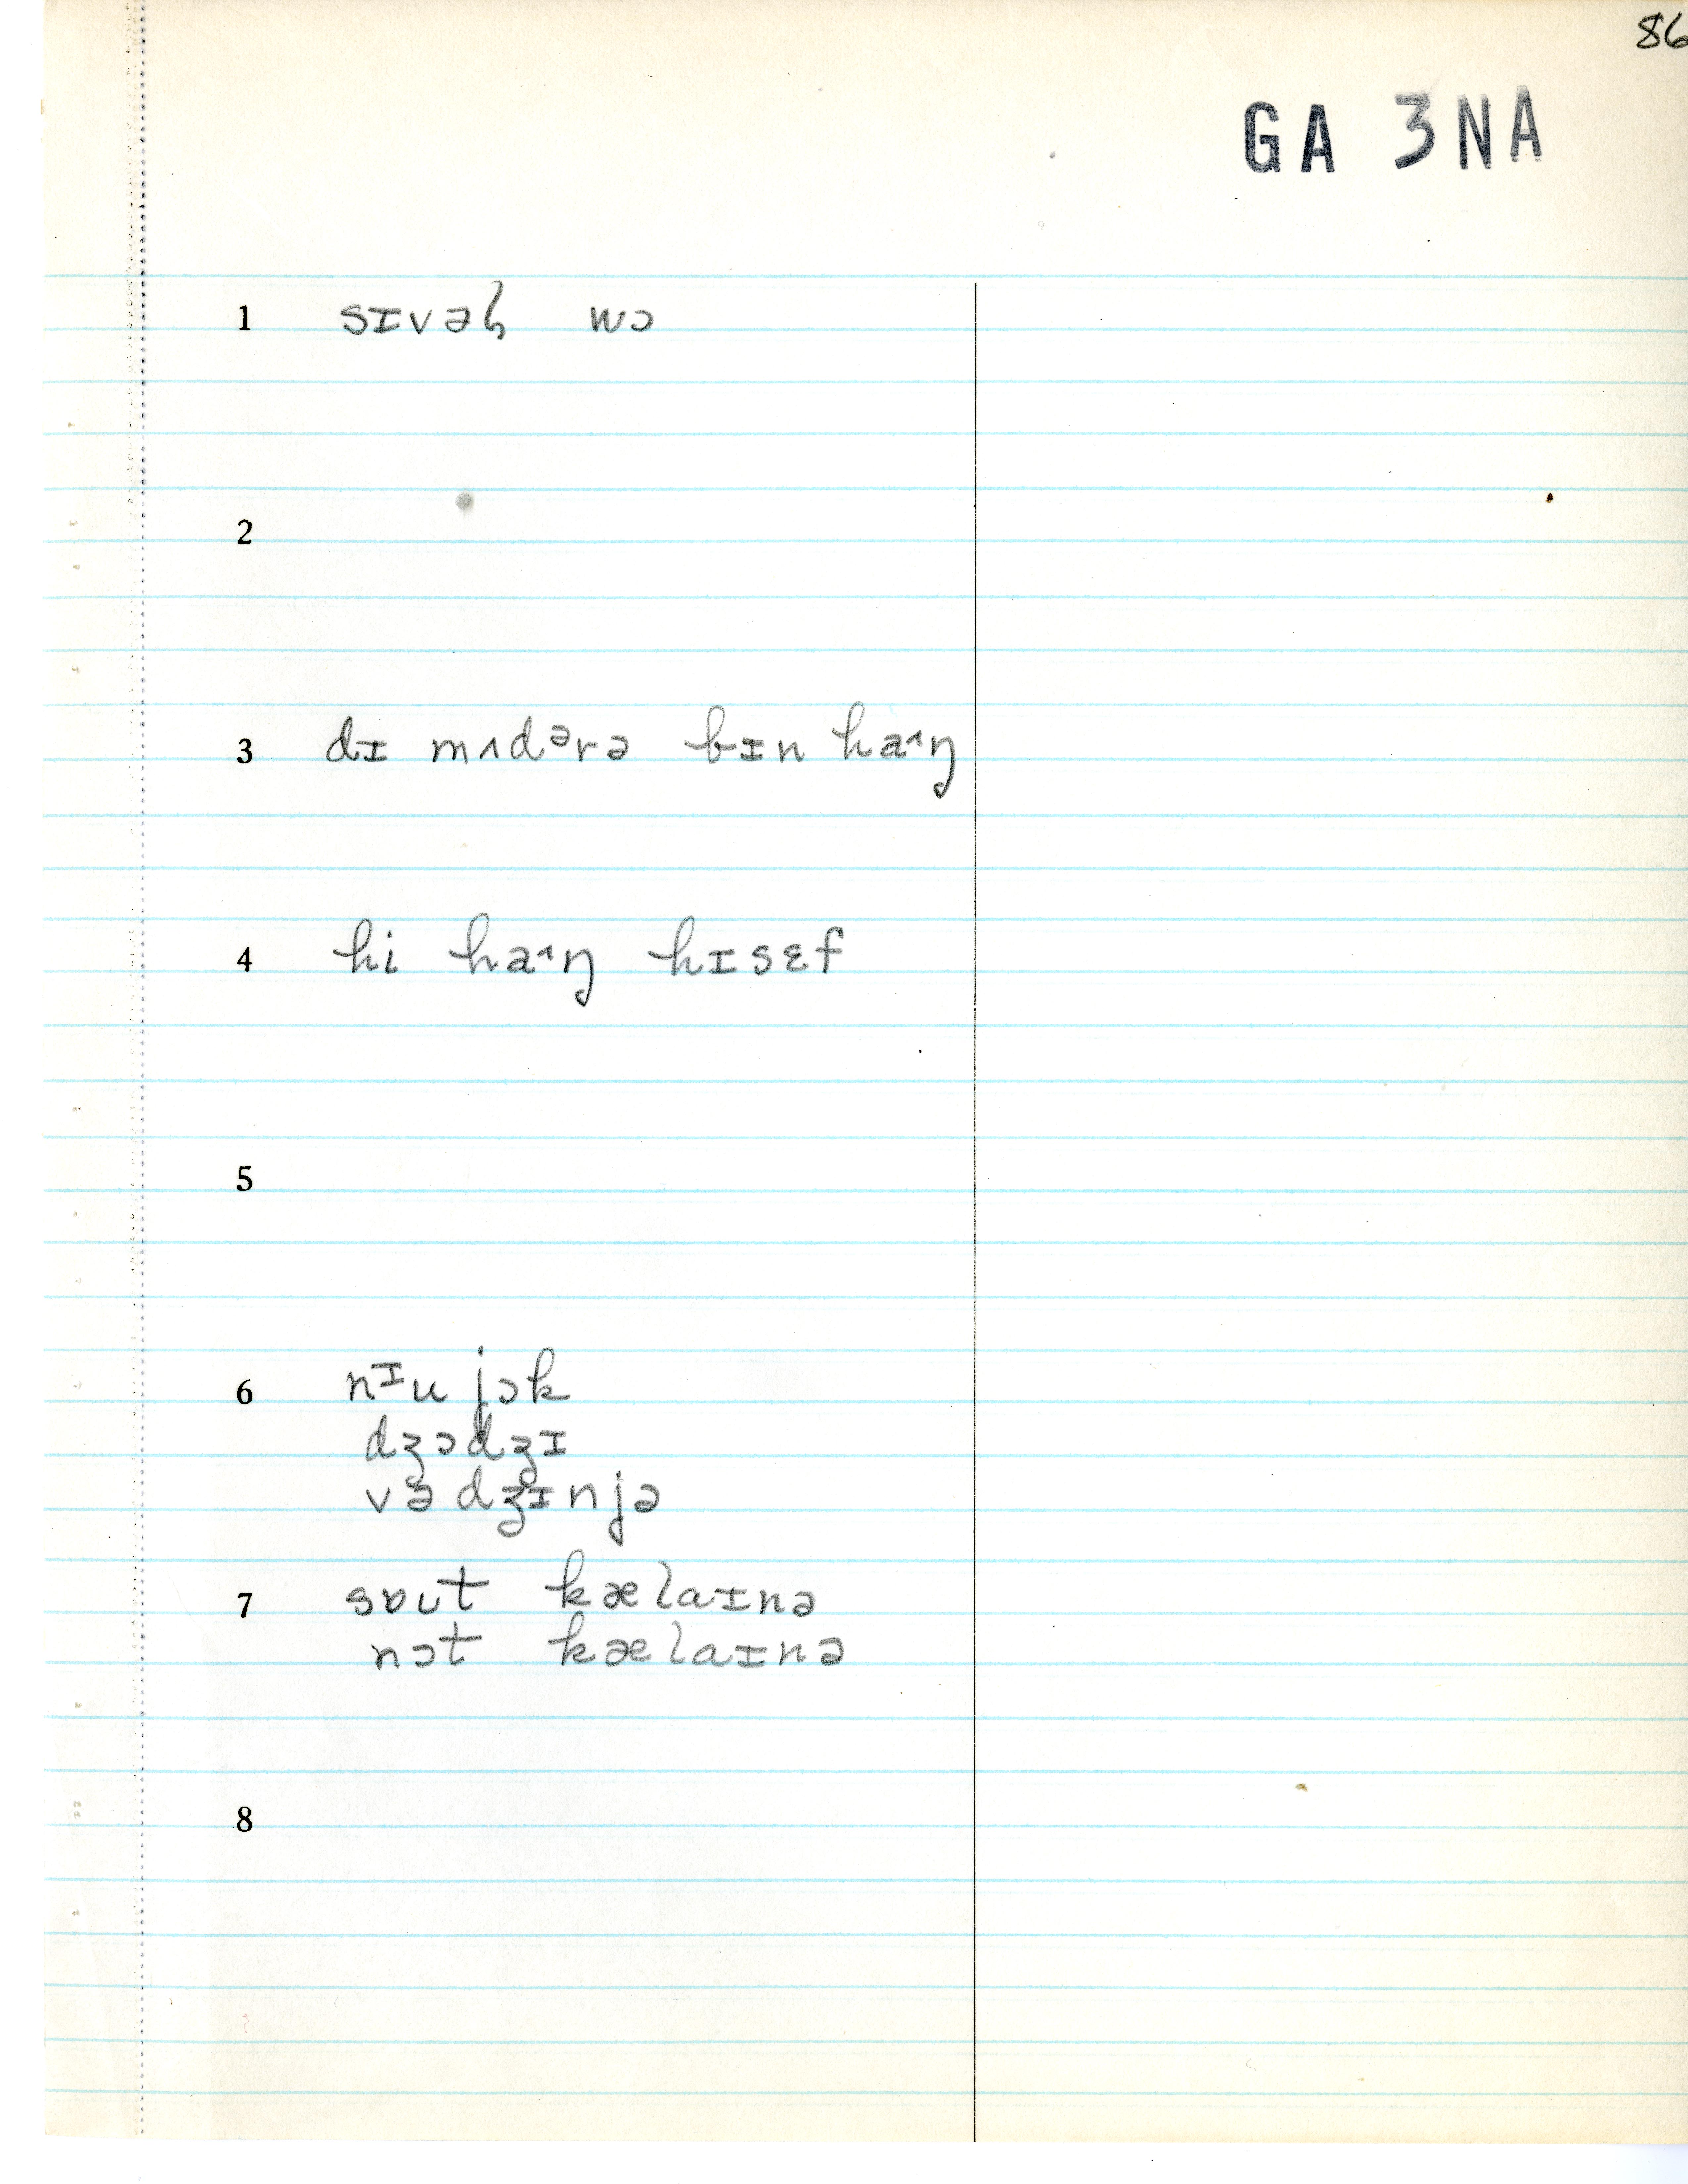 86
GA 3NA
1 sɪvəl̥ wɔ
2
3 dɪ mʌdᵊrə bɪn haˑŋ
4 hi haˑŋ hɪsɛf
5
6 nᶦu jɔk
dʒɔdʒɪ
vədʒɪnjə
7 sɒut kælaɪnə
nɔt kælaɪnə
8